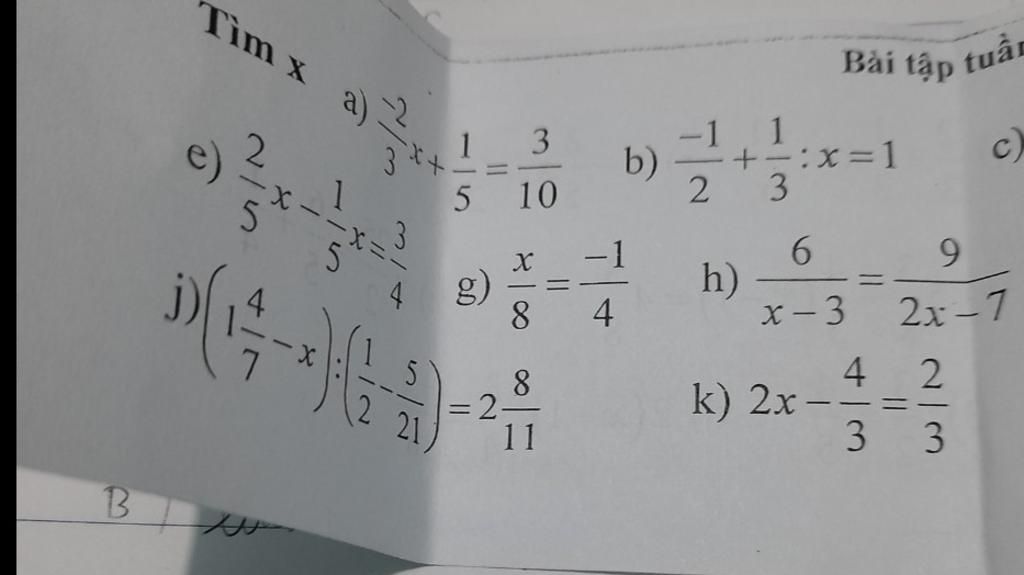 Tìm x
Bài tập tuần
a) \frac{-2}{3}x + \frac{1}{5} = \frac{3}{10} b) \frac{-1}{2} + \frac{1}{3} : x = 1 c)
e) \frac{2}{5}x - \frac{1}{5}x = \frac{3}{4} g) \frac{x}{8} = \frac{-1}{4} h) \frac{6}{x-3} = \frac{9}{2x-7}
j) \left(1\frac{4}{7} - x\right) : \left(\frac{1}{2} - \frac{5}{21}\right) = 2\frac{8}{11} k) 2x - \frac{4}{3} = \frac{2}{3}
B